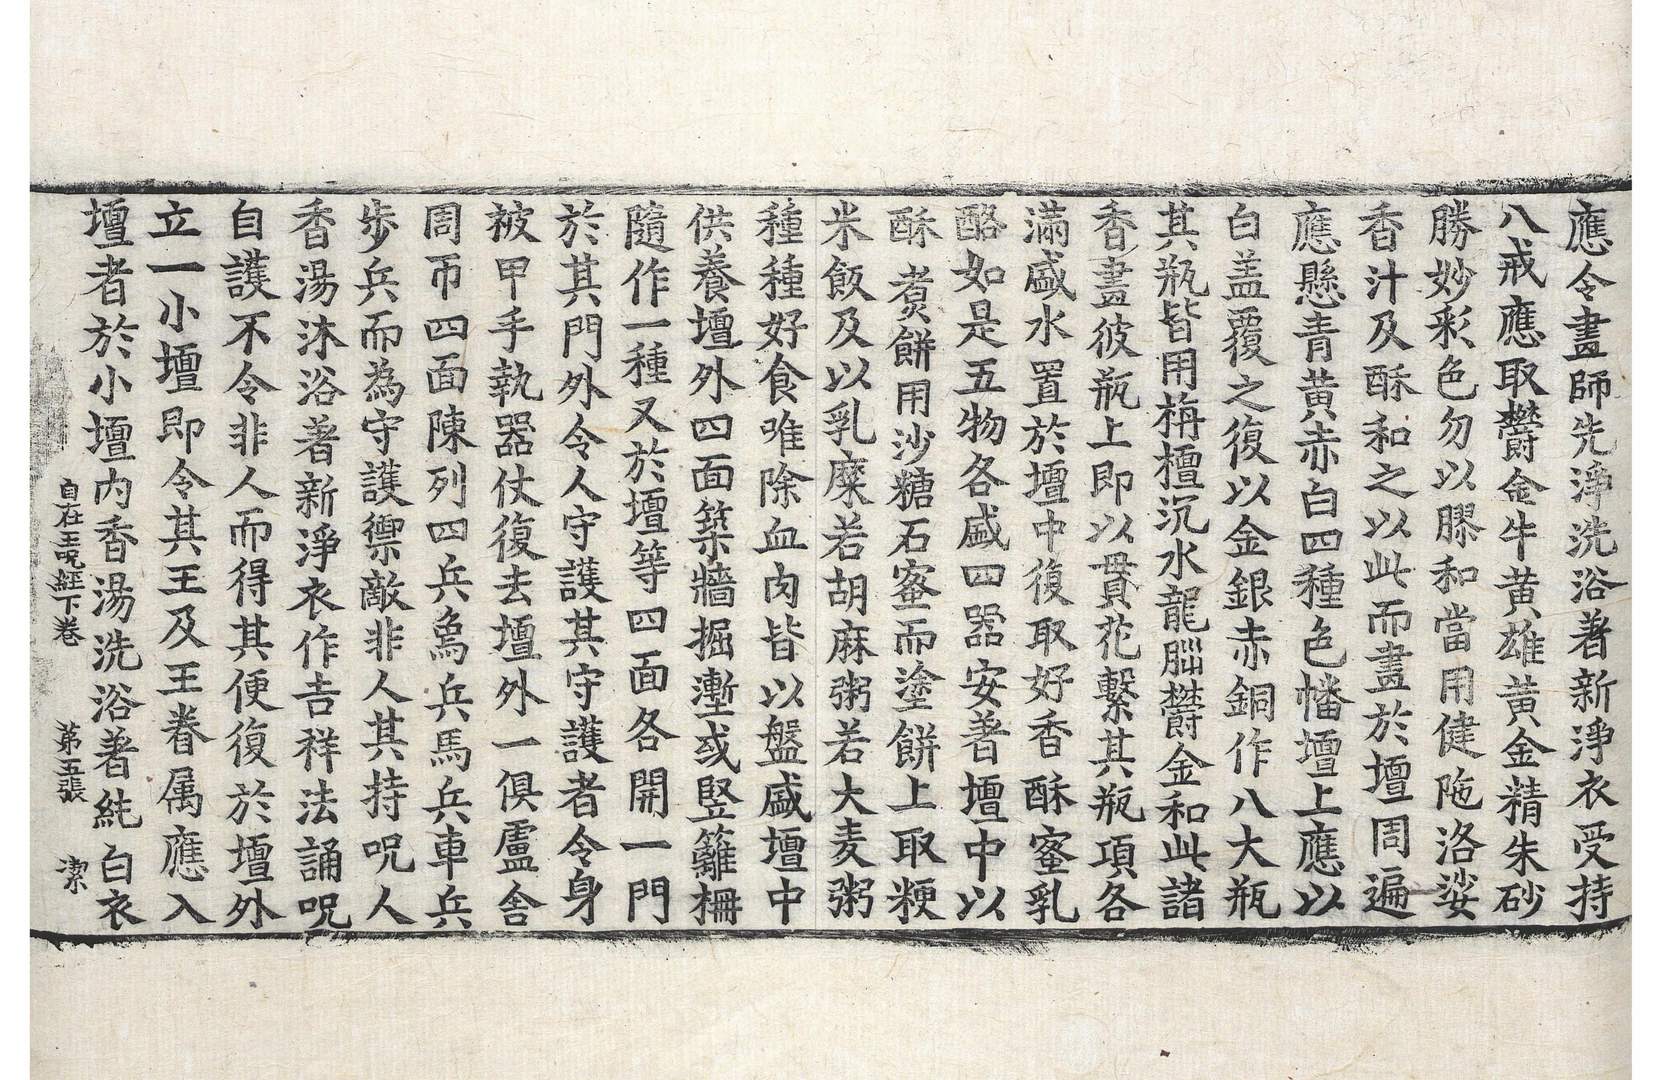 應令畫師先淨洗浴著新淨衣受持
八戒應取欝金牛黄雄黄金精朱砂
勝妙彩色勿以膠和當用健陁洛娑
香汁及酥和之以此而畫於壇周遍
應懸青黄赤白四種色幡壇上應以
白盖覆之復以金銀赤銅作八大瓶
其瓶皆用栴檀沉水龍腦欝金和此諸
香畫彼瓶上即以貫花繫其瓶項各
滿盛水置於壇中復取好香酥蜜乳
酪如是五物各盛四器安著壇中以
酥煮餅用沙糖石蜜而塗餅上取粳
米飯及以乳糜若胡麻粥若大麦粥
種種好食唯除血肉皆以盤盛壇中
供養壇外四面築牆掘壍或竪籬柵
隨作一種又於壇等四面各開一門
於其門外令人守護其守護者令身
被甲手執器仗復去壇外一俱盧舍
周帀四面陳列四兵象兵馬兵車兵
步兵而為守護禦敵非人其持呪人
香湯沐浴著新淨衣作吉祥法誦呪
自護不令非人而得其便復於壇外
立一小壇即令其王及王眷属應入
壇者於小壇内香湯洗浴著純白衣
自在王呪経下卷 第五張 潔